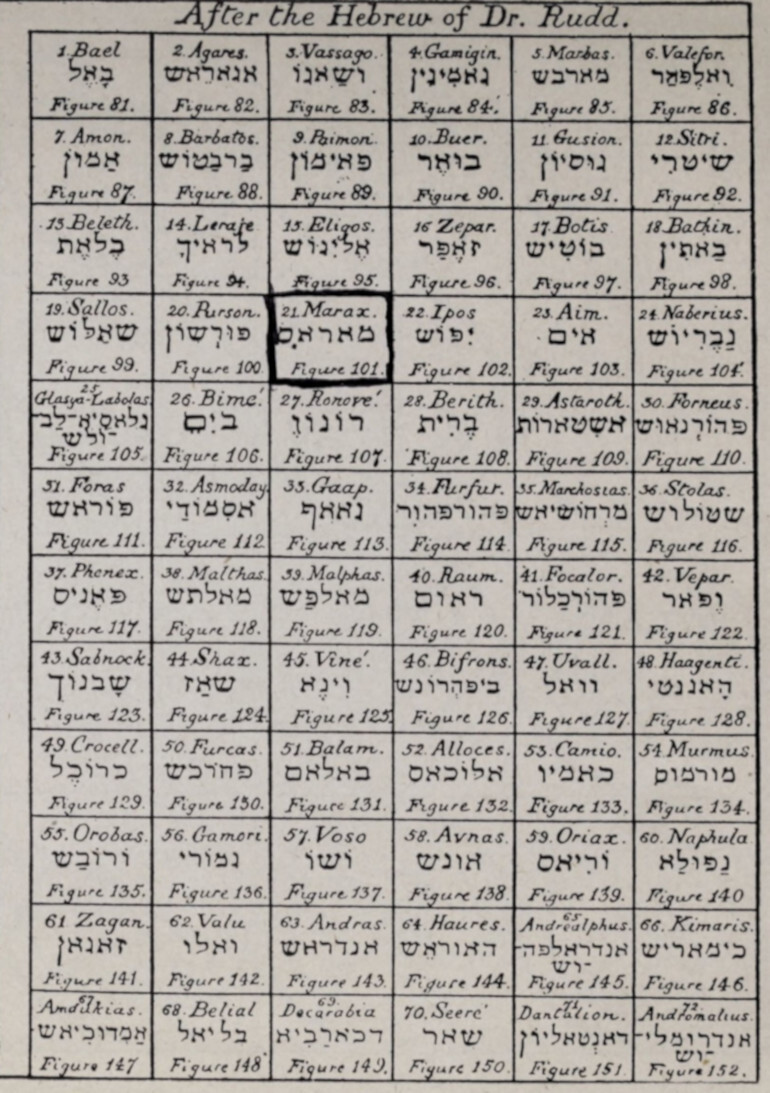 After the Hebrew of Dr. Rudd.
1. Bael
בָאֵל
Figure 81.
2. Agares.
אגאראש
Figure 82.
3. Vassago.
ושאגו
Figure 83.
4. Gamigin.
גאמיגין
Figure 84.
5. Marbas.
מארבש
Figure 85.
6. Valefor.
ואלפאר
Figure 86.
7. Amon.
אמון
Figure 87.
8. Barbatos.
ברבטוש
Figure 88.
9. Paimon.
פאימון
Figure 89.
10. Buer.
בואר
Figure 90.
11. Gusion.
גוסיון
Figure 91.
12. Sitri.
שיטרי
Figure 92.
13. Beleth.
בלאת
Figure 93
14. Leraje
לראיך
Figure 94.
15. Eligos.
אליגוש
Figure 95.
16 Zepar.
זאפר
Figure 96.
17. Botis
בוטיש
Figure 97.
18. Bathin.
באתין
Figure 98.
19. Sallos.
שאלוש
Figure 99.
20. Purson.
פורשון
Figure 100.
21. Marax.
מאראס
Figure 101.
22. Ipos
יפוש
Figure 102.
23. Aim.
אים
Figure 103.
24. Naberius.
נבריוש
Figure 104.
25
Glasya-Labolas.
גלאסיא-לב-
-ולש
Figure 105.
26. Bimé.
בים
Figure 106.
27. Ronové.
רונוו
Figure 107.
28. Berith.
ברית
Figure 108.
29. Astaroth.
אשטארות
Figure 109.
30. Forneus.
פהורנאוש
Figure 110.
31. Foras
פוראש
Figure 111.
32. Asmoday
אסמודי
Figure 112
33. Gaap.
גאאף
Figure 113.
34. Furfur.
פהורפהור
Figure 114
35. Marchosias.
מרחושיאש
Figure 115.
36. Stolas.
שטולוש
Figure 116.
37. Phenex.
פאניס
Figure 117.
38. Malthas.
מאלתש
Figure 118.
39. Malphas.
מאלפש
Figure 119.
40. Raum.
ראום
Figure 120.
41. Focalor.
פהורכלור
Figure 121.
42. Vepar.
ופאר
Figure 122.
43. Sabnock.
שבנוך
Figure 123.
44. Shax.
שאז
Figure 124.
45. Viné.
וינא
Figure 125.
46. Bifrons.
ביפהרונש
Figure 126.
47. Uvall.
וואל
Figure 127.
48. Haagenti.
האגנטי
Figure 128.
49. Crocell.
כרוכל
Figure 129.
50. Furcas.
פהרכש
Figure 130.
51. Balam.
באלאם
Figure 131.
52. Alloces.
אלוכאס
Figure 132.
53. Camio.
כאמיו
Figure 133.
54 Murmus.
מורמוס
Figure 134.
55. Orobas.
ורובש
Figure 135.
56. Gamori.
גמורי
Figure 136.
57. Voso
ושו
Figure 137.
58. Avnas.
אונש
Figure 138.
59. Oriax.
וריאס
Figure 139.
60. Naphula
נפולא
Figure 140
61 Zagan.
זאגאן
Figure 141.
62. Valu
ואלו
Figure 142.
63. Andras.
אנדראש
Figure 143.
64. Haures.
האוראש
Figure 144.
65
Andrealphus.
אנדראלפה-
-וש
Figure 145.
66. Kimaris.
כימאריש
Figure 146.
67
Amdukias.
אמדוכיאש
Figure 147
68. Belial
בליאל
Figure 148
69.
Decarabia
דכארביא
Figure 149.
70. Seeré
שאר
Figure 150.
71
Dantalion.
דאנטאליון
Figure 151.
72.
Andromalius.
אנדרומלי-
-וש
Figure 152.